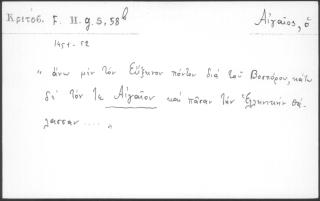 Κριτόβ. F. H. g. 5, 58b
Αἰγαῖος, ὁ
1451-52
" ἄνω μὲν τὸν Εὔξεινον πόντον διὰ τοῦ Βοσπόρου, κάτω
δὲ τόν τε Αἰγαῖον καὶ πᾶσαν τὴν Ἑλληνικὴν θά-
λασσαν .... "